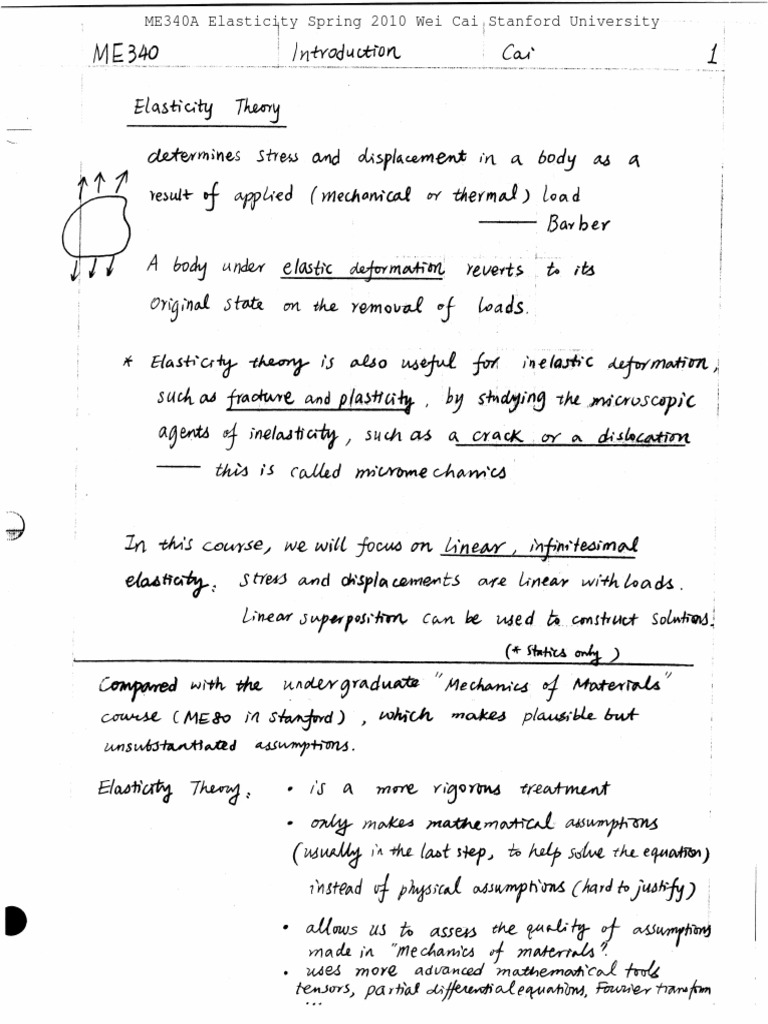 ME340A Elasticity Spring 2010 Wei Cai Stanford University
ME340 Introduction Cai 1
Elasticity Theory
determines stress and displacement in a body as a
result of applied (mechanical or thermal) load
—— Barber
A body under elastic deformation reverts to its
original state on the removal of loads.
* Elasticity theory is also useful for inelastic deformation,
such as fracture and plasticity, by studying the microscopic
agents of inelasticity, such as a crack or a dislocation
—— this is called micromechanics
In this course, we will focus on linear, infinitesimal
elasticity: stress and displacements are linear with loads.
Linear superposition can be used to construct solutions.
(* statics only)
Compared with the undergraduate "Mechanics of Materials"
course (ME80 in Stanford), which makes plausible but
unsubstantiated assumptions.
Elasticity Theory: • is a more rigorous treatment
• only makes mathematical assumptions
(usually in the last step, to help solve the equation)
instead of physical assumptions (hard to justify)
• allows us to assess the quality of assumptions
made in "Mechanics of materials".
• uses more advanced mathematical tools
tensors, partial differential equations, Fourier transform
...